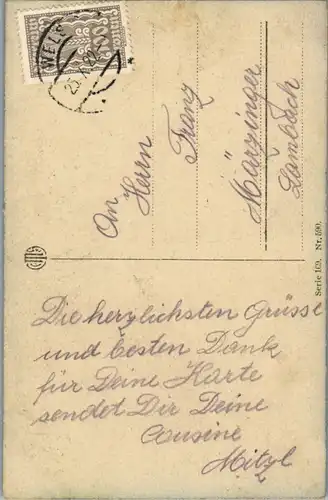 WELS
An
Herrn
Franz
Märzinger
Lambach
Serie 169. Nr. 590.
Die herzlichsten Grüsse
und besten Dank
für Deine Karte
sendet Dir Deine
Cousine
Mitzl